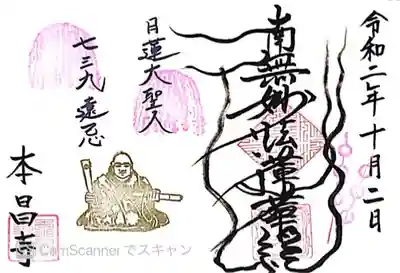 令和二年十月二日
南無妙法蓮華経
日蓮大聖人
七三九遠忌
本昌寺
CamScanner でスキャン